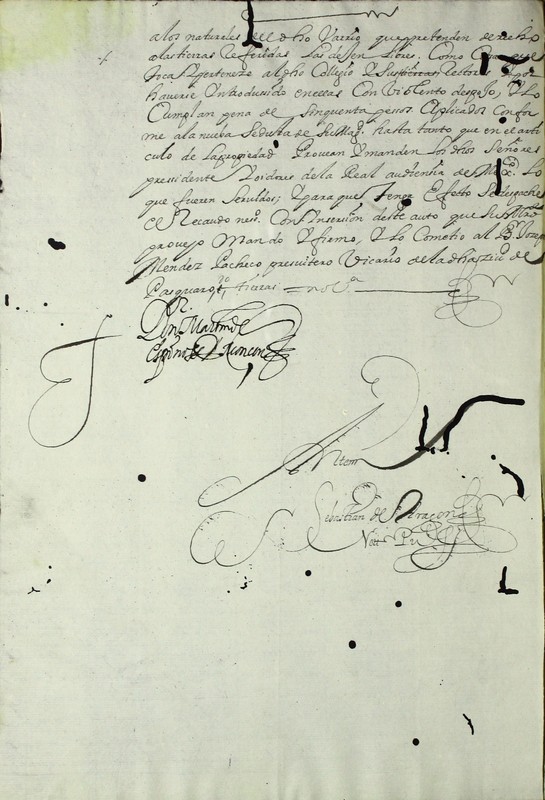 a los naturales de el dho Varrio que pretenden derecho
a las tierras referidas las dejen libre. Como
Pertenezen al dho Collegio
haverse Yntroducido en ellas Con Violento despojo, Y lo
Cumplan pena de Sinquenta pesos Aplicados Confor
me a la nueva Sedula de su Magd. hasta tanto que en el arti
culo de la propiedad Provean Y manden los dhos Señores
pressidente Y oidores de la Real audiencia de Mexco. Lo
que fueren servidos; Y para que tenga Efecto se despache
el Recaudo neso. Con Ynsersion deste auto que
proveyo Mando Y firmo, Y lo Cometio al Br. Joseph
Mendez Pacheco presvitero Vicario de la dha
Pasquaro,
Dr.
Don Martin de
Espinosa Monzon
Ante mi
Sebastian de
Nott Pu